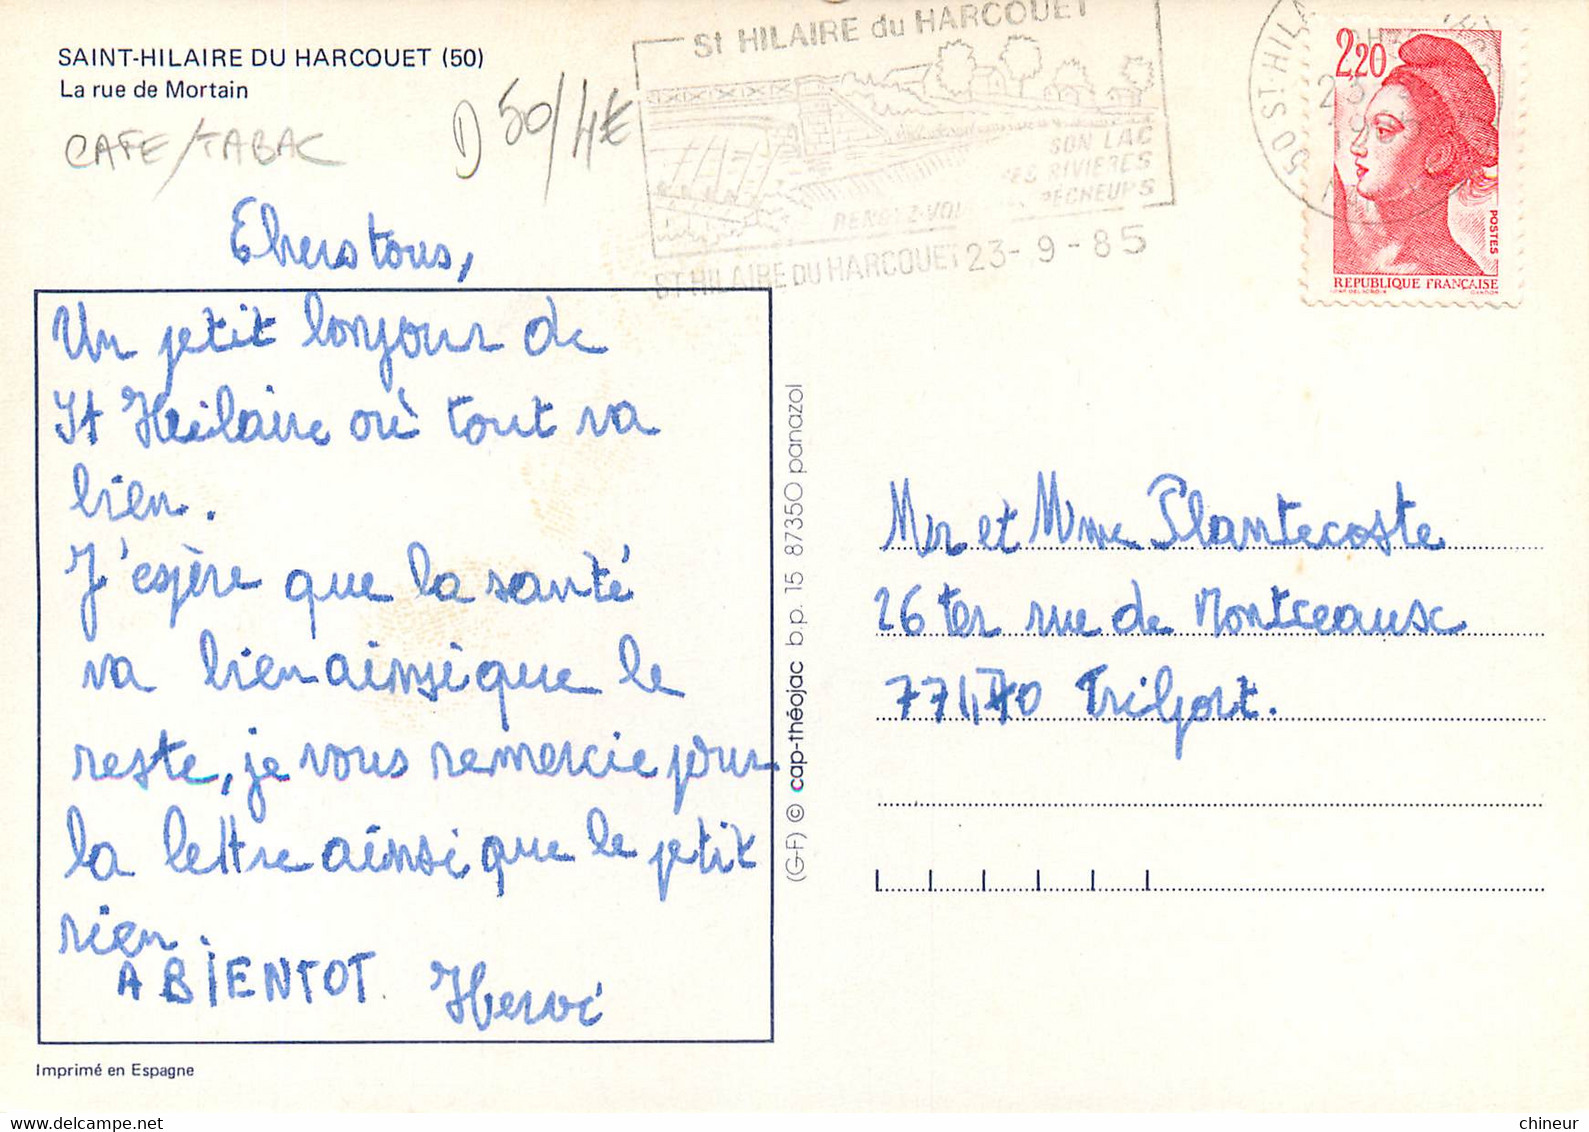 SAINT-HILAIRE DU HARCOUET (50)
La rue de Mortain
CAFE/TABAC
D 50/4€
St HILAIRE du HARCOUET
SON LAC
SES RIVIERES
RENDEZ-VOUS PECHEURS
ST HILAIRE DU HARCOUET 23-9-85
50 ST-HILA
2,20
POSTES
REPUBLIQUE FRANÇAISE
Chers tous,
Un petit bonjour de
St Hilaire où tout va
bien.
J'espère que la santé
va bien ainsi que le
reste, je vous remercie pour
la lettre ainsi que le petit
rien.
A BIENTOT Hervé
Imprimé en Espagne
(G-F) © cap-théojac b.p. 15 87350 panazol
Mr et Mme Plantecoste
26 ter rue de Montceaux
77470 Trilport.
chineur